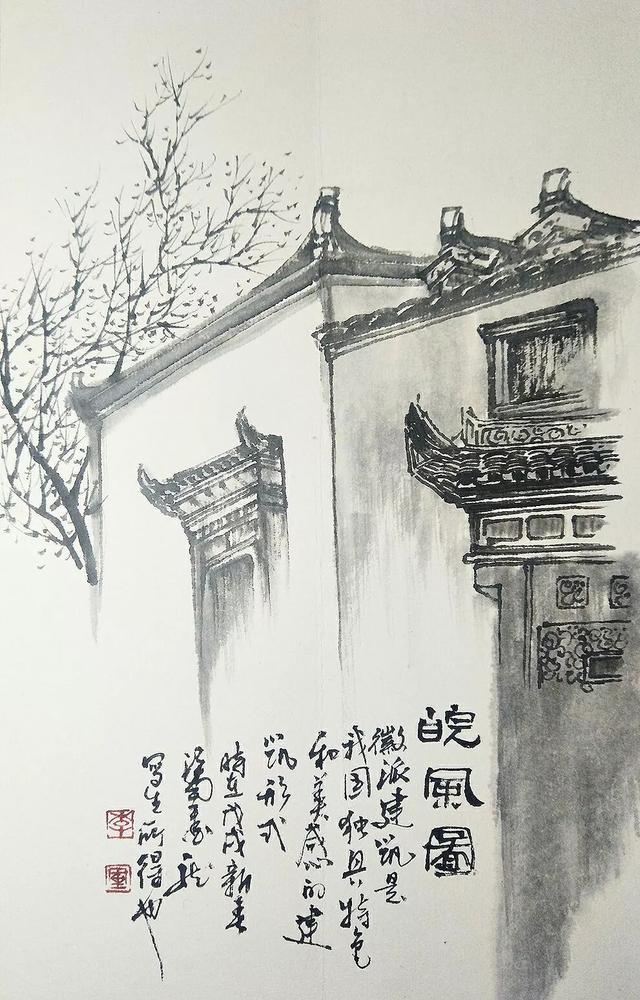 皖風圖
徽派建筑是
我国独具特色
和美感的建
筑形式
時在戊戌新春
写生所得也